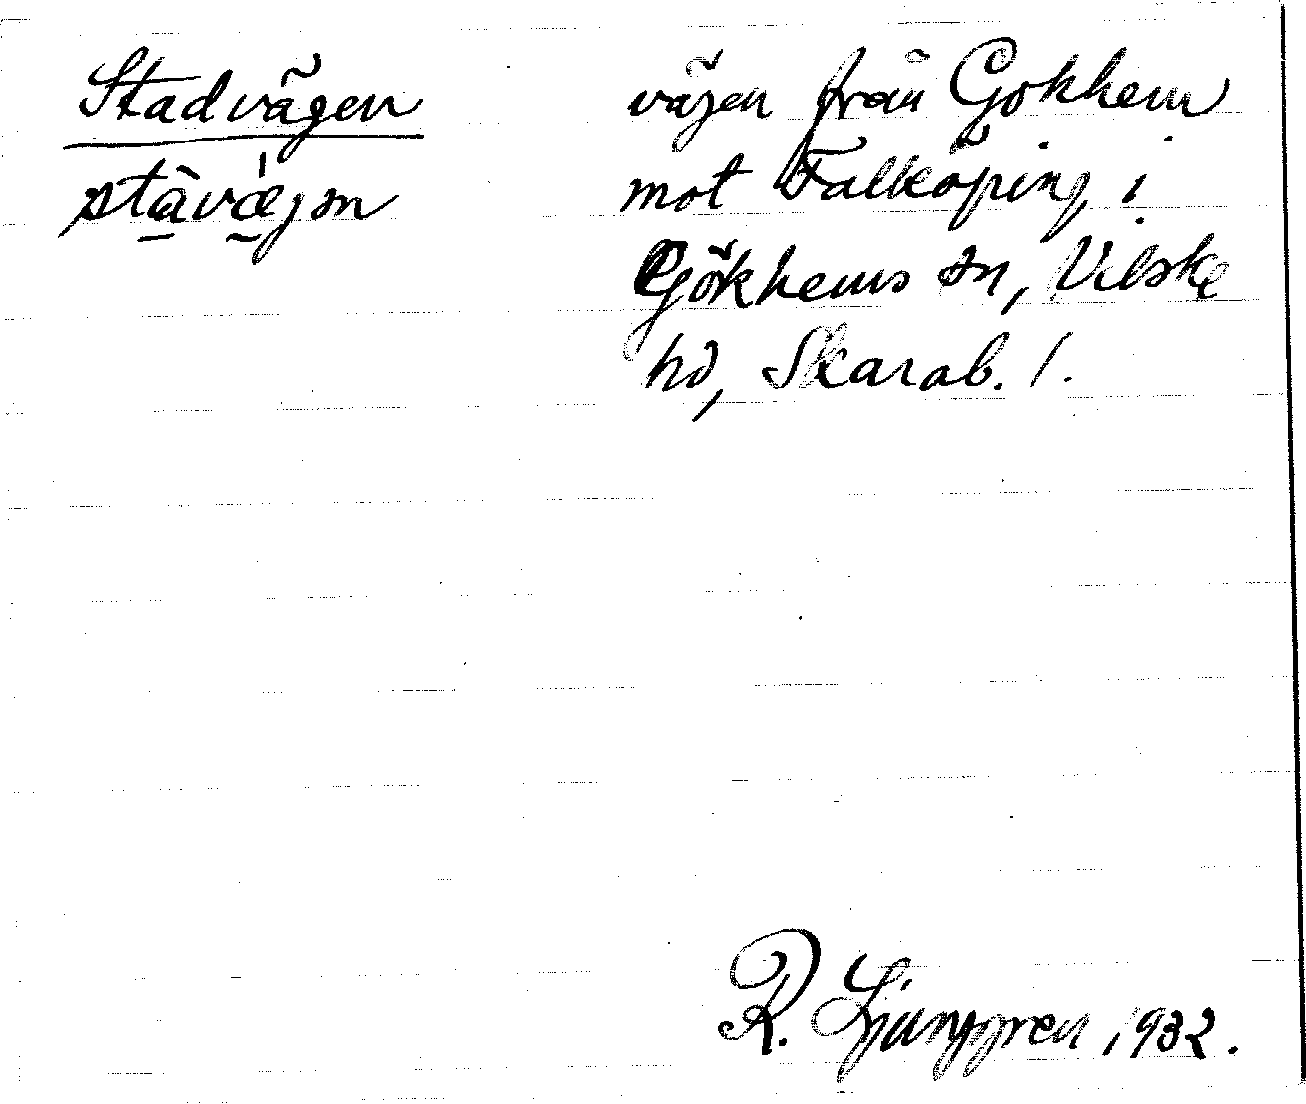 Stadvägen
stàvǽjən
vägen från Gökhem
mot Falköping i
Gökhems sn, Vilske
hd, Skarab. l.
R. Ljunggren 1932.